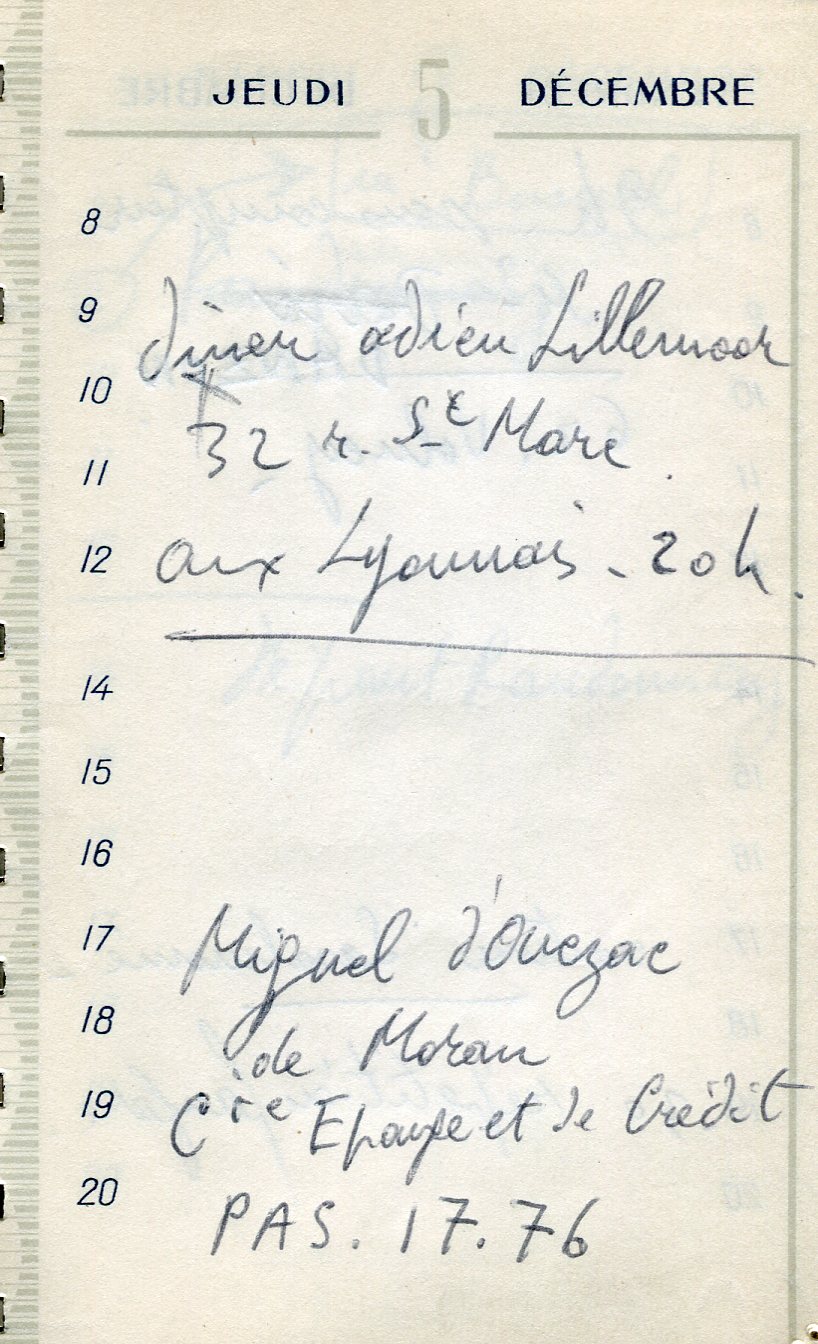 JEUDI 5 DÉCEMBRE
8
9
dîner adieu Lillemoor
10
32 r. St Marc.
11
12
aux Lyonnais - 20h.
14
15
16
17
Miguel d'Ouezac
18
de Moran
19
Cie Epargne et de Crédit
20
PAS. 17.76